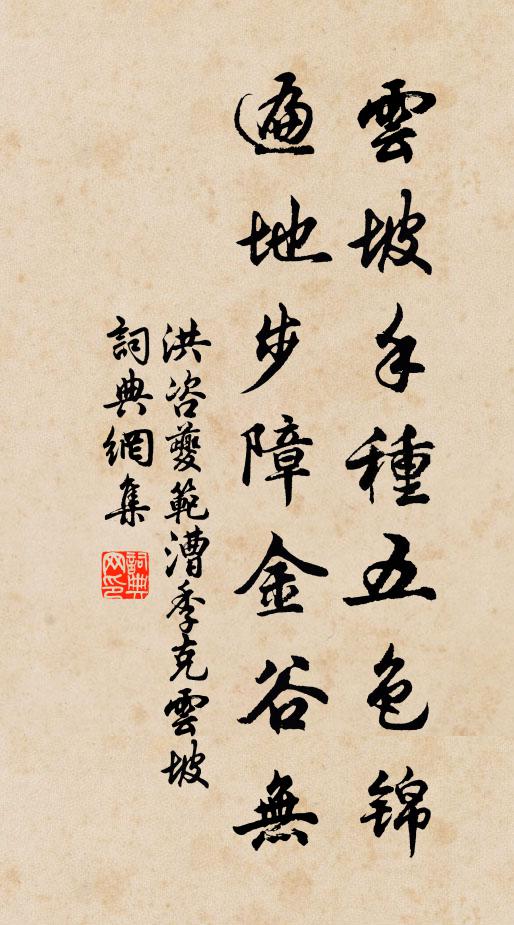 雲坡手種五色錦
遍地步障金谷無
洪咨夔範漕季克雲坡
詞典網集
詞典網印